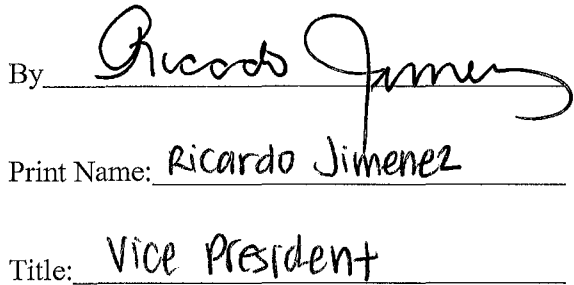 By Ricardo Jimenez
Print Name: Ricardo Jimenez
Title: Vice President